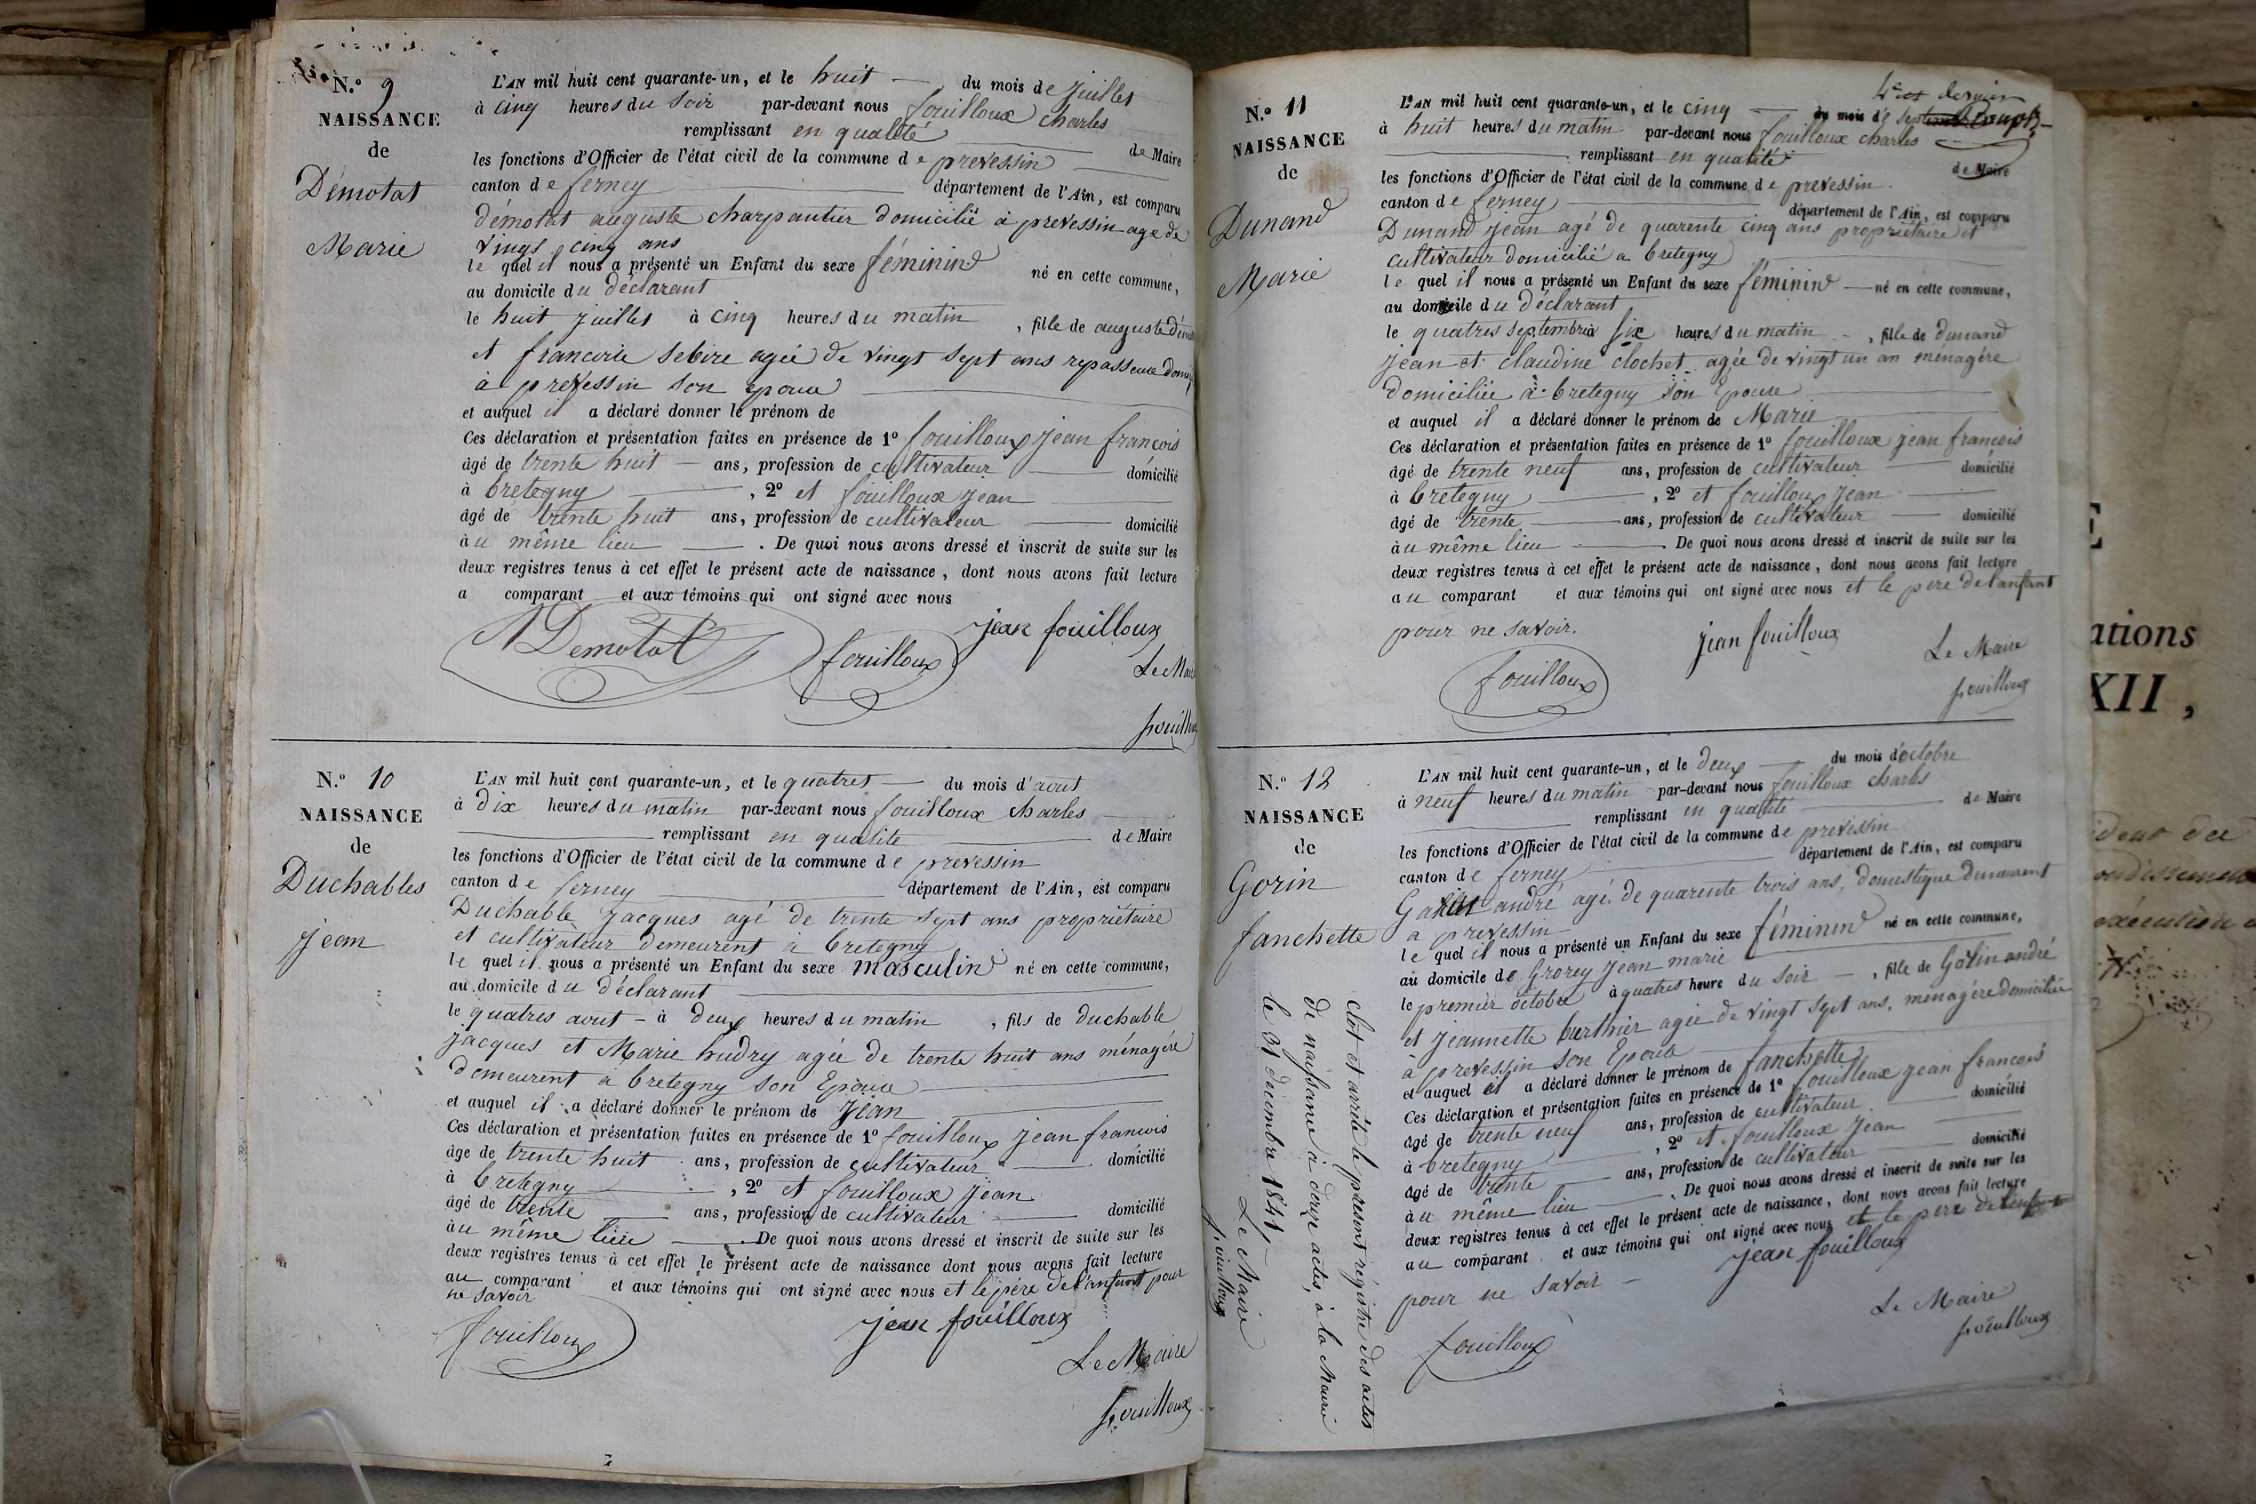 N.° 9
NAISSANCE
de
Démotat
Marie
L'AN mil huit cent quarante-un, et le huit du mois de juillet
à cinq heures du soir par-devant nous fouilloux charles
remplissant en qualité de Maire
les fonctions d'Officier de l'état civil de la commune de prevessin
canton de ferney département de l'Ain, est comparu
démotat auguste charpantier domicilié à prevessin age de
vingt cinq ans
le quel il nous a présenté un Enfant du sexe féminin né en cette commune,
au domicile du déclarant
le huit juillet à cinq heures du matin, fille de auguste
et francoise sebire agée de vingt sept ans repasseuse
à prevessin son epouse
et auquel il a déclaré donner le prénom de
Ces déclaration et présentation faites en présence de 1° fouilloux jean francois
âgé de trente huit ans, profession de cultivateur domicilié
à bretegny, 2° et fouilloux jean
âgé de trente huit ans, profession de cultivateur domicilié
àu même lieu. De quoi nous avons dressé et inscrit de suite sur les
deux registres tenus à cet effet le présent acte de naissance, dont nous avons fait lecture
a comparant et aux témoins qui ont signé avec nous
A Demotat fouilloux jean fouilloux
Le Maire
fouilloux
N.° 10
NAISSANCE
de
Duchables
jean
L'AN mil huit cent quarante-un, et le quatres du mois d'aout
à dix heures du matin par-devant nous fouilloux charles
remplissant en qualite de Maire
les fonctions d'Officier de l'état civil de la commune de prevessin
canton de ferney département de l'Ain, est comparu
Duchable jacques agé de trente sept ans propriétaire
et cultivateur demeurent a bretegny
le quel il nous a présenté un Enfant du sexe masculin né en cette commune,
au domicile du déclarant
le quatres aout à deux heures du matin, fils de duchable
jacques et Marie hudry agée de trente huit ans ménagére
demeurent a bretegny son Epouse
et auquel il a déclaré donner le prénom de jean
Ces déclaration et présentation faites en présence de 1° fouilloux jean francois
âge de trente huit ans, profession de cultivateur domicilié
à bretegny, 2° et fouilloux jean
âgé de trente ans, profession de cultivateur domicilié
àu même lieu. De quoi nous avons dressé et inscrit de suite sur les
deux registres tenus à cet effet le présent acte de naissance dont nous avons fait lecture
au comparant et aux témoins qui ont signé avec nous et le pére de l'enfant pour
ne savoir
fouilloux jean fouilloux
Le Maire
fouilloux
4e et dernier
N.° 11
NAISSANCE
de
Dunand
Marie
L'AN mil huit cent quarante-un, et le cinq du mois de
à huit heures du matin par-devant nous fouilloux charles
remplissant en qualité de Maire
les fonctions d'Officier de l'état civil de la commune de prevessin.
canton de ferney département de l'Ain, est comparu
Dunand jean agé de quarente cinq ans propriétaire et
cultivateur domicilié a bretegny
le quel il nous a présenté un Enfant du sexe féminin né en cette commune,
au domicile du déclarant
le quatres septembre à six heures du matin, fille de dunand
jean et claudine clochet agée de vingt un an ménagére
domiciliée à bretegny son Epouse
et auquel il a déclaré donner le prénom de Marie
Ces déclaration et présentation faites en présence de 1° fouilloux jean francois
âgé de trente neuf ans, profession de cultivateur domicilié
à bretegny, 2° et fouilloux jean
âgé de trente ans, profession de cultivateur domicilié
àu même lieu. De quoi nous avons dressé et inscrit de suite sur les
deux registres tenus à cet effet le présent acte de naissance, dont nous avons fait lecture
au comparant et aux témoins qui ont signé avec nous et le pere de l'anfant
pour ne savoir.
fouilloux jean fouilloux Le Maire
fouilloux
N.° 12
NAISSANCE
de
Gorin
fanchette
L'AN mil huit cent quarante-un, et le deux du mois d'octobre
à neuf heures du matin par-devant nous fouilloux charles
remplissant en qualité de Maire
les fonctions d'Officier de l'état civil de la commune de prevessin
canton de ferney département de l'Ain, est comparu
andré agé de quarente trois ans, domestique demeurent
a prevessin
le quel il nous a présenté un Enfant du sexe féminin né en cette commune,
au domicile de Grorey jean marie
le premier octobre à quatres heure du soir, fille de Gorin andré
et jeannette berthier agée de vingt sept ans, menagére domiciliée
à prevessin son Epouse
et auquel il a déclaré donner le prénom de fanchette
Ces déclaration et présentation faites en présence de 1° fouilloux jean francois
âgé de trente neuf ans, profession de cultivateur domicilié
à bretegny, 2° et fouilloux jean
âgé de trente ans, profession de cultivateur domicilié
àu même lieu. De quoi nous avons dressé et inscrit de suite sur les
deux registres tenus à cet effet le présent acte de naissance, dont nous avons fait lecture
au comparant et aux témoins qui ont signé avec nous et le pere de
pour ne savoir
fouilloux jean fouilloux
Le Maire
fouilloux
clos et arrêté le présent régistre des actes
de naissance à douze actes, à la Mairie
le 31 decembre 1841
Le Maire
fouilloux
ations
XII,